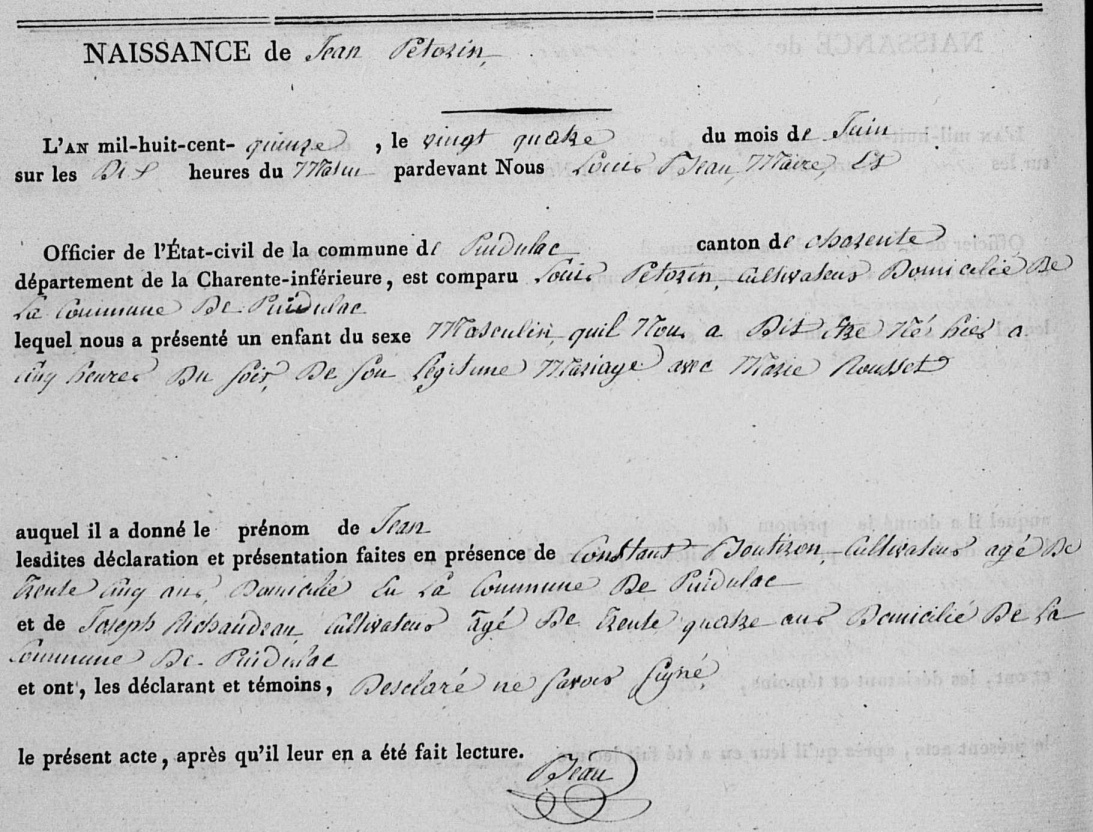 NAISSANCE de Jean Petorin,
L'AN mil-huit-cent- quinze, le vingt quatre du mois de Juin
sur les Dix heures du Matin pardevant Nous Louis Bleau, Maire, Es
Officier de l'État-civil de la commune de Puidulac canton de charente
département de la Charente-inférieure, est comparu Louis Petorin, cultivateur Domicilié De
La Commune De Puidulac
lequel nous a présenté un enfant du sexe Masculin, quil Nou a Dit etre Nés hier a
cinq heures Du soir, De son Légitime Mariage avec Marie Rousset
auquel il a donné le prénom de Jean
lesdites déclaration et présentation faites en présence de Constant Boutiron, Cultivateur agé De
trente cinq ans, Domicilié En La Commune De Puidulac
et de Joseph Richaudeau Cultivateur agé De trente quatre ans Domicilié De La
Commune De Puidulac
et ont, les déclarant et témoins, Desclaré ne savoir signé,
le présent acte, après qu'il leur en a été fait lecture.
Bleau